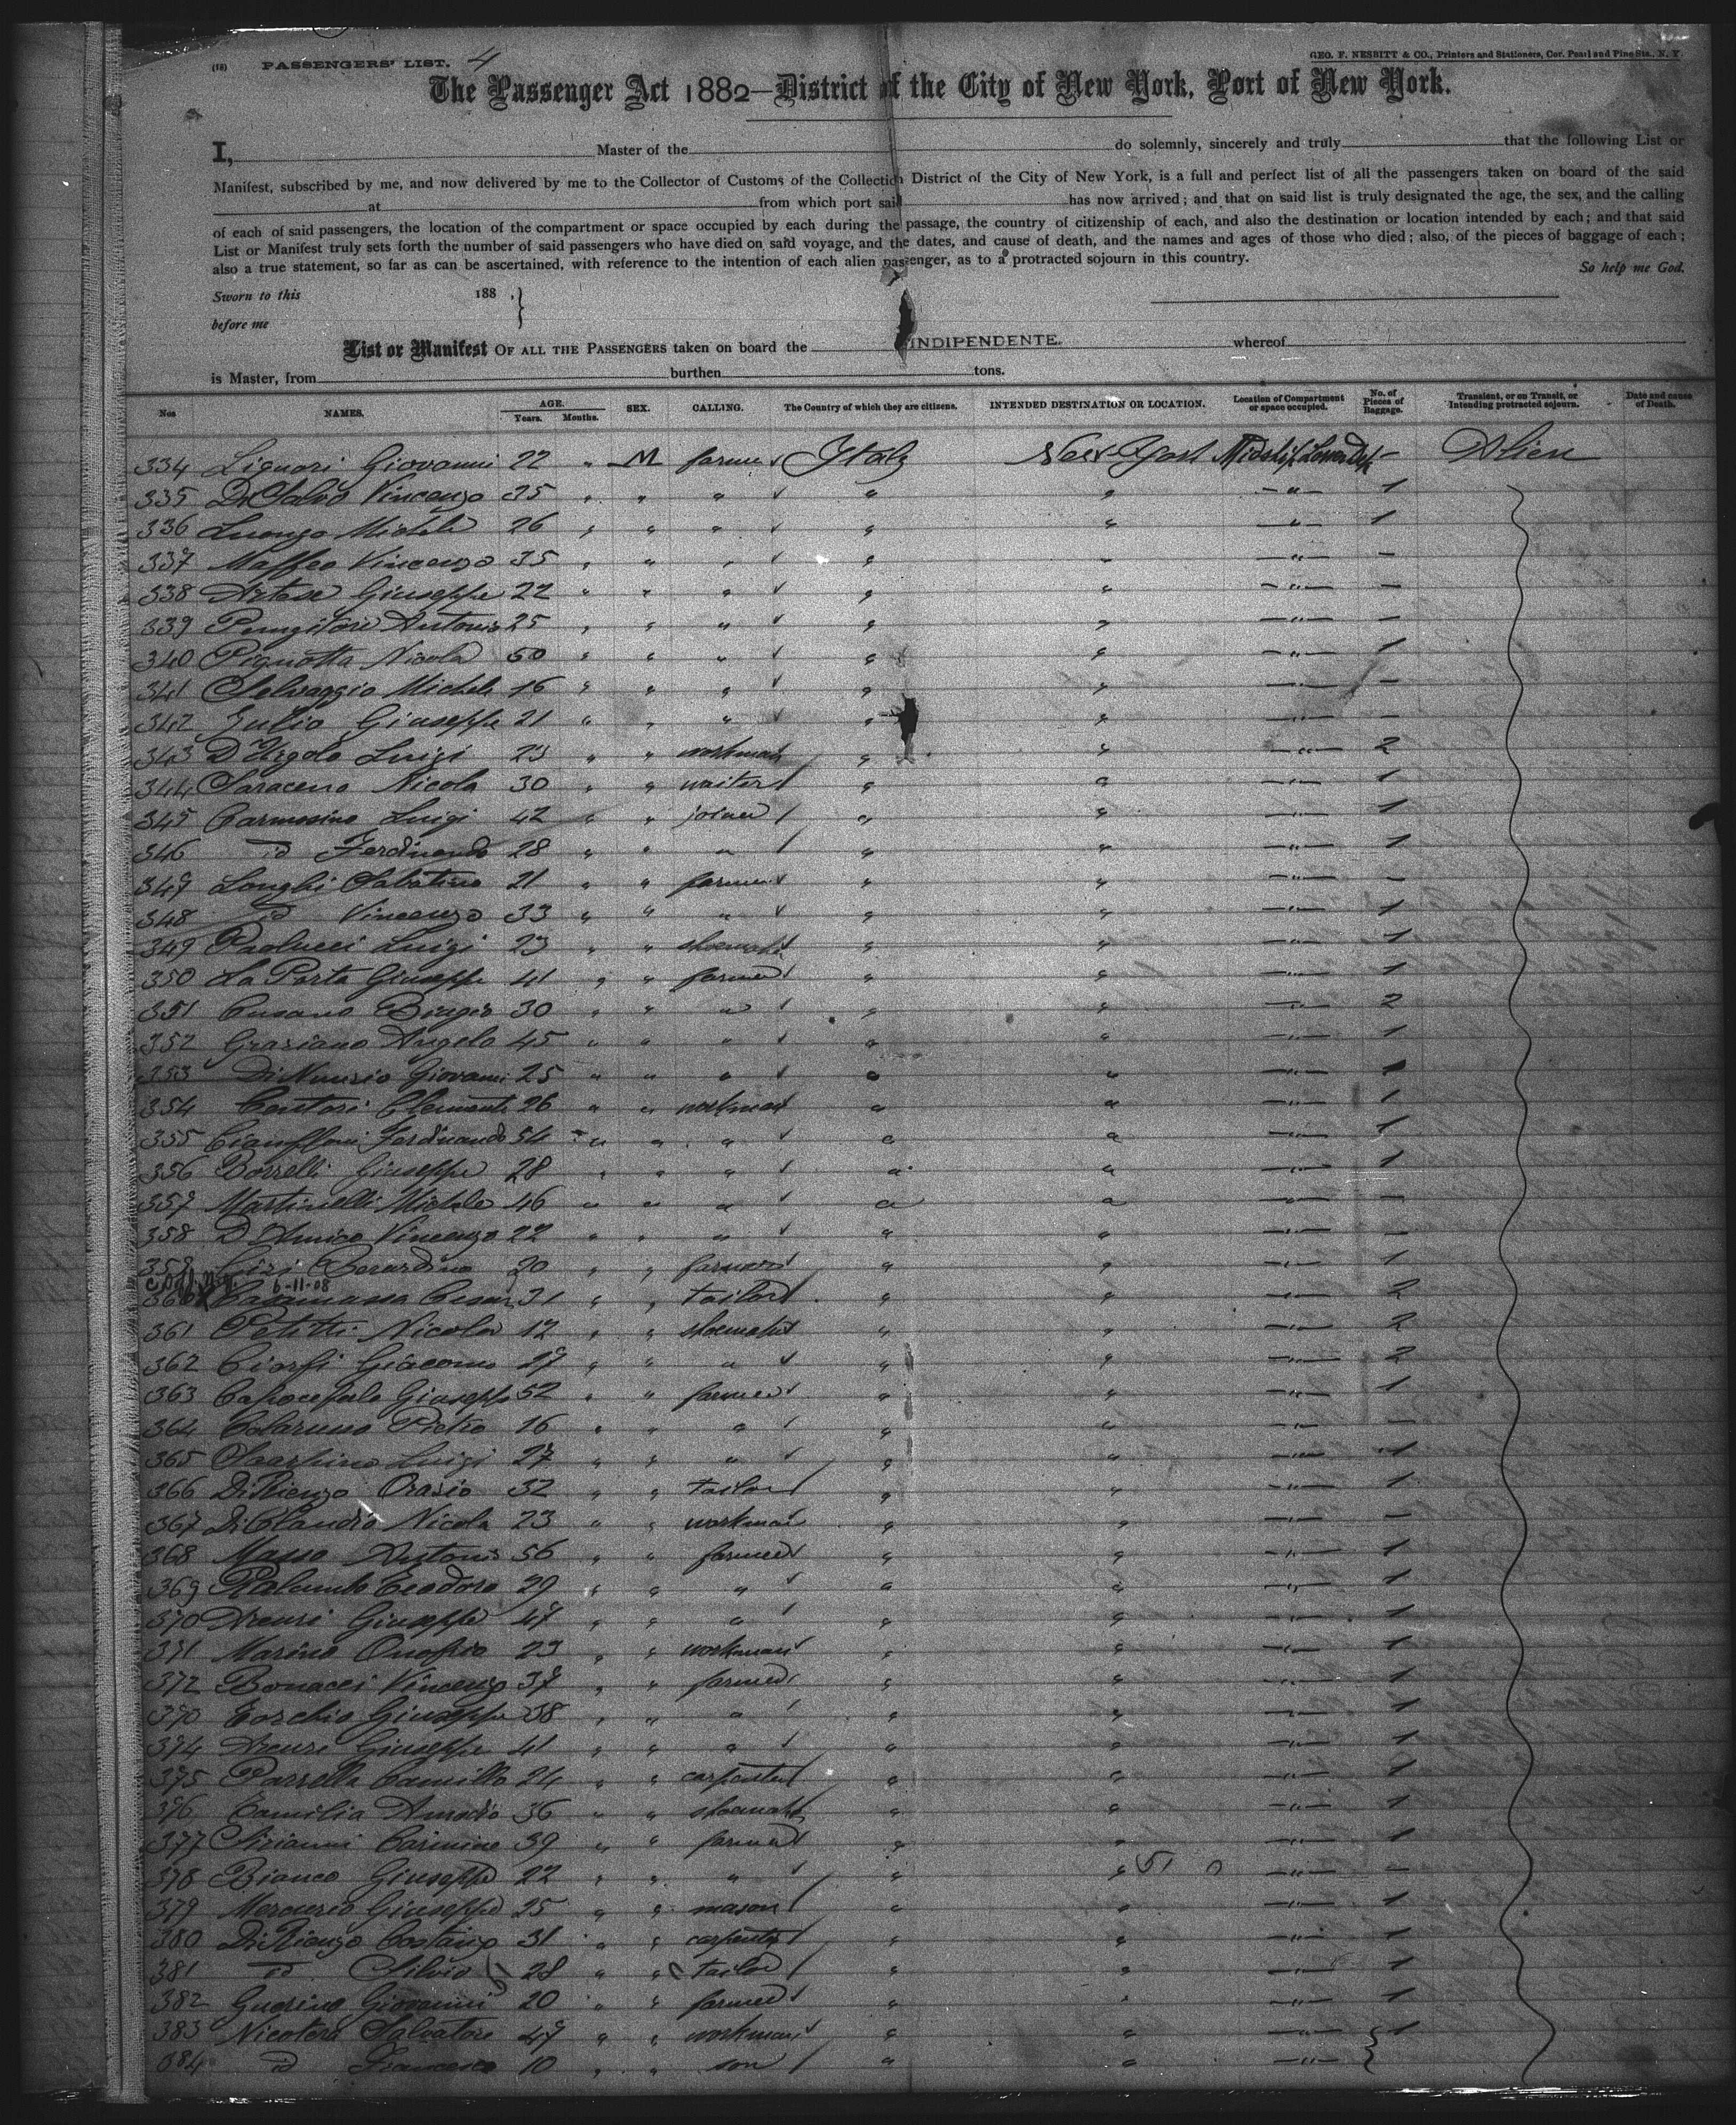 (18) PASSENGERS' LIST. 4 GEO. F. NESBITT & CO., Printers and Stationers, Cor. Pearl and Pine Sts., N. Y.
The Passenger Act 1882—District of the City of New York, Port of New York.
I, Master of the do solemnly, sincerely and truly that the following List or
Manifest, subscribed by me, and now delivered by me to the Collector of Customs of the Collection District of the City of New York, is a full and perfect list of all the passengers taken on board of the said
at from which port said has now arrived; and that on said list is truly designated the age, the sex, and the calling
of each of said passengers, the location of the compartment or space occupied by each during the passage, the country of citizenship of each, and also the destination or location intended by each; and that said
List or Manifest truly sets forth the number of said passengers who have died on said voyage, and the dates, and cause of death, and the names and ages of those who died; also, of the pieces of baggage of each;
also a true statement, so far as can be ascertained, with reference to the intention of each alien passenger, as to a protracted sojourn in this country. So help me God.
Sworn to this 188 .
before me
List or Manifest OF ALL THE PASSENGERS taken on board the INDIPENDENTE. whereof
is Master, from burthen tons.
Nos NAMES. AGE. Years. Months. SEX. CALLING. The Country of which they are citizens. INTENDED DESTINATION OR LOCATION. Location of Compartment or space occupied. No. of Pieces of Baggage. Transient, or on Transit, or Intending protracted sojourn. Date and cause of Death.
334 Liguori Giovanni 22 " M farmer Italy New York Midship Lower Dek — Alien
335 Di Salvo Vincenzo 35 " " " " " —"— 1
336 Luongo Michele 26 " " " " " —"— 1
337 Maffeo Vincenzo 35 " " " " " —"— —
338 Artese Giuseppe 22 " " " " " —"— —
339 Pungitore Antonio 25 " " " " " —"— —
340 Pignotta Nicola 50 " " " " " —"— 1
341 Selvaggio Michele 16 " " " " " —"— —
342 Iulio Giuseppe 21 " " " " " —"— —
343 D'Luigi 23 " " workman " " —"— 2
344 Saraceno Nicola 30 " " waiter " " —"— 1
345 Carmosino Luigi 42 " " joiner " " —"— 1
346 id Ferdinando 28 " " " " " —"— 1
347 Longhi Sabatino 21 " " farmer " " —"— —
348 id Vincenzo 33 " " " " " —"— 1
349 Paolucci Luigi 23 " " shoemaker " " —"— 1
350 La Porta Giuseppe 41 " " farmer " " —"— 1
351 Cusano Biagio 30 " " " " " —"— 2
352 Graziano Angelo 45 " " " " " —"— 1
353 Di Nunzio Giovanni 25 " " " " " —"— 1
354 Contori Clemente 26 " " workman " " —"— 1
355 Cianfloni Ferdinando 54 " " " " " —"— 1
356 Borrelli Giuseppe 28 " " " " " —"— 1
357 Martinelli Michele 46 " " " " " —"— —
358 D'Amico Vincenzo 22 " " " " " —"— —
359 Berardino 20 " " farmer " " —"— 1
6-11-08
360 X Casamassa Cesare 31 " " tailor " " —"— 2
361 Petitti Nicola 12 " " shoemaker " " —"— 2
362 Ciorfi Giacomo 27 " " " " " —"— 2
363 Capocefalo Giuseppe 52 " " farmer " " —"— 1
364 Colarusso Pietro 16 " " " " " —"— —
365 Luigi 27 " " " " " —"— 1
366 Di Rienzo Orazio 32 " " tailor " " —"— 1
367 Di Claudio Nicola 23 " " workman " " —"— —
368 Masso Antonio 56 " " farmer " " —"— 1
369 Palumbo Teodoro 29 " " " " " —"— 1
370 Arcuri Giuseppe 47 " " " " " —"— 1
371 Marino Onofrio 23 " " workman " " —"— 1
372 Bonacci Vincenzo 37 " " farmer " " —"— 1
370 Torchio Giuseppe 38 " " " " " —"— 1
374 Arcuri Giuseppe 41 " " " " " —"— 1
375 Parrella Camillo 24 " " carpenter " " —"— 1
376 Familia Amodio 36 " " shoemaker " " —"— 1
377 Sirianni Carmine 39 " " farmer " " —"— 1
378 Bianco Giuseppe 22 " " " " " 51 0 —"— —
379 Mercurio Giuseppe 25 " " mason " " —"— 1
380 Di Rienzo Costanzo 31 " " carpenter " " —"— 1
381 id Silvio 28 " " tailor " " —"— 1
382 Guarino Giovanni 20 " " farmer " " —"— 1
383 Nicotera Salvatore 47 " " workman " " —"— 1
384 id Francesco 10 " " son " " —"—